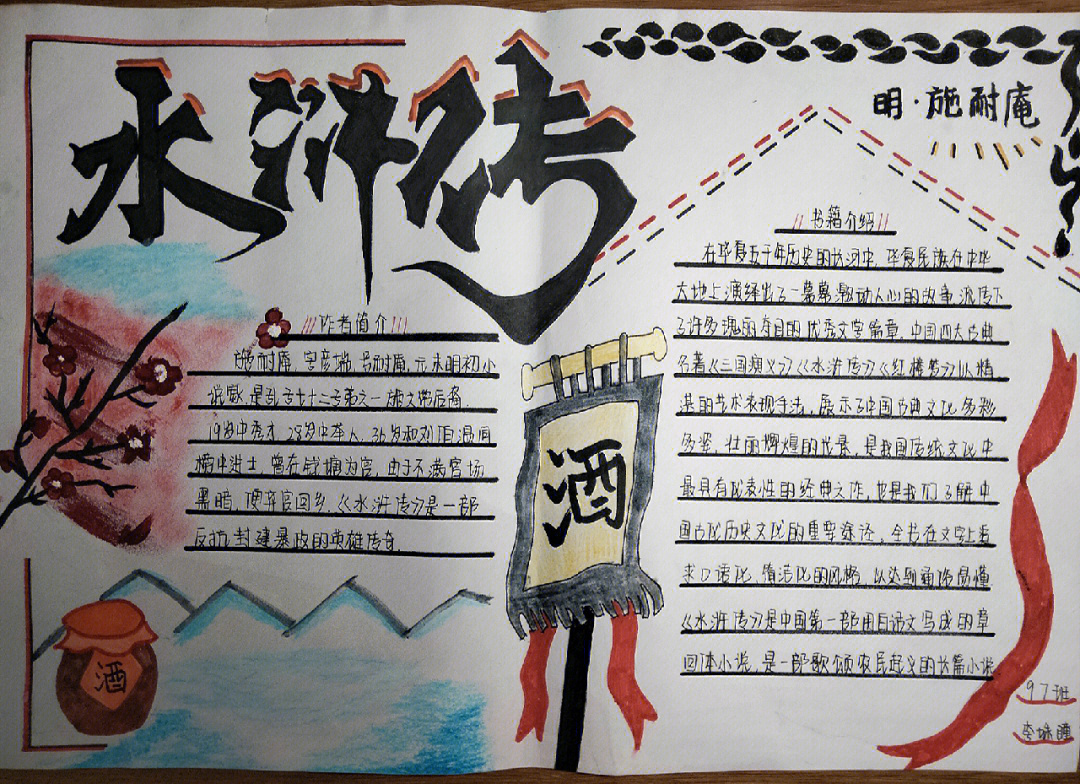 水浒传
明·施耐庵
作者简介
施耐庵，字彦端，号耐庵，元末明初小
说家，是孔子七十二弟子之一施之常后裔，
19岁中秀才，28岁中举人，36岁和刘伯温同
榜中进士，曾在钱塘为官，由于不满官场
黑暗，便弃官回乡，《水浒传》是一部
反抗封建暴政的英雄传奇。
酒
酒
书籍介绍
在华夏五千年历史的长河中，华夏民族在中华
大地上演绎出了一幕幕激动人心的故事，流传下
了许多瑰丽夺目的优秀文学篇章，中国四大古典
名著《三国演义》《水浒传》《红楼梦》以精
湛的艺术表现手法，展示了中国古典文化多彩
多姿、壮丽辉煌的光景，是我国传统文化中
最具有代表性的经典之作，也是我们了解中
国古代历史文化的重要途径，全书在文字上委
求口语化，简洁化的风格，以达到通俗易懂
《水浒传》是中国第一部用白话文写成的章
回体小说，是一部歌颂农民起义的长篇小说
97班
李